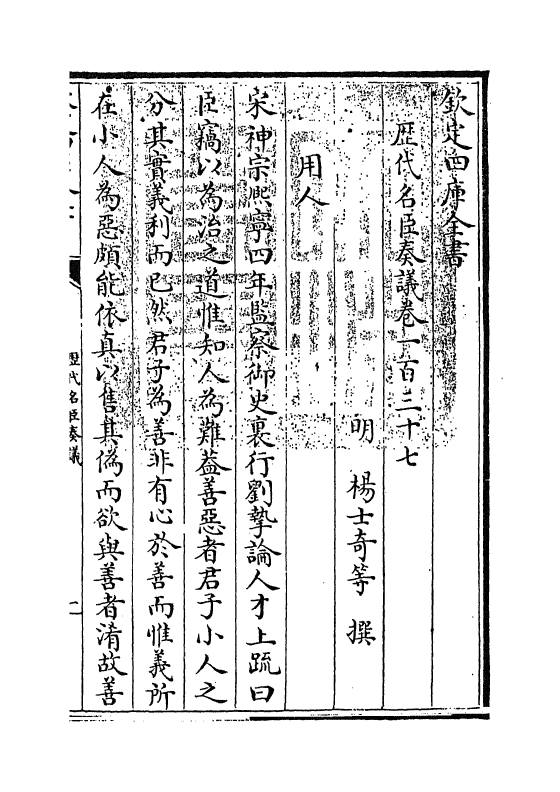 欽定四庫全書
歴代名臣奏議卷一百三十七
明 楊士奇等 撰
用人
宋神宗熙寧四年監察御史裏行劉摯論人才上䟽曰
臣竊以為治之道惟知人為難葢善惡者君子小人之
分其實義利而已然君子為善非有心於善而惟義所
在小人為惡頗能依真以售其偽而欲與善者淆故善
歴代名臣奏議